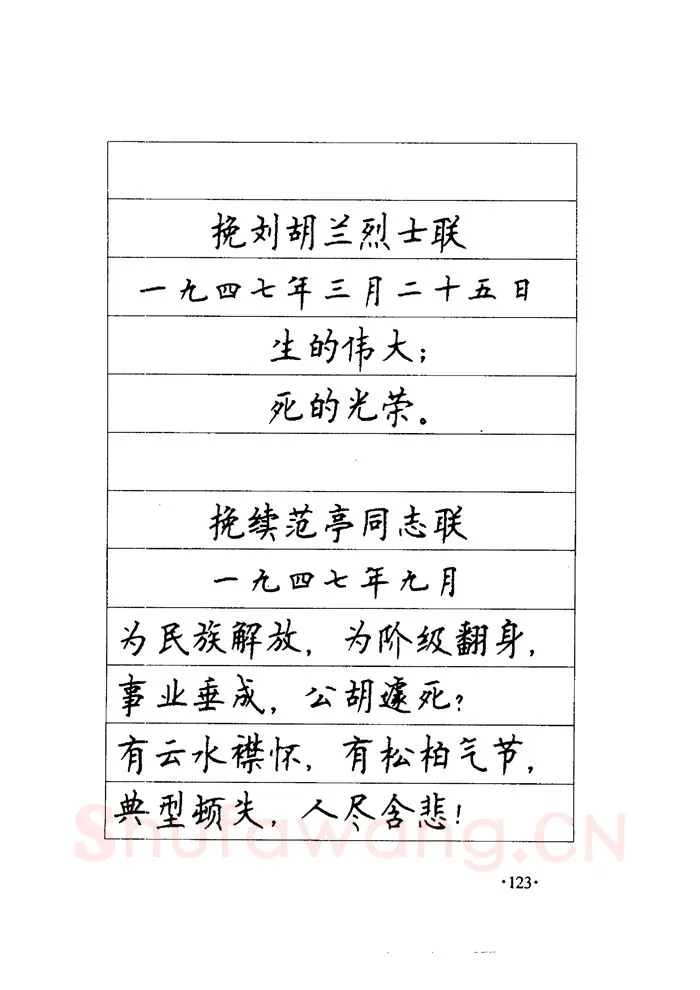 挽刘胡兰烈士联
一九四七年三月二十五日
生的伟大；
死的光荣。
挽续范亭同志联
一九四七年九月
为民族解放，为阶级翻身，
事业垂成，公胡遽死？
有云水襟怀，有松柏气节，
典型顿失，人尽含悲！
Shufawang.CN
·123·